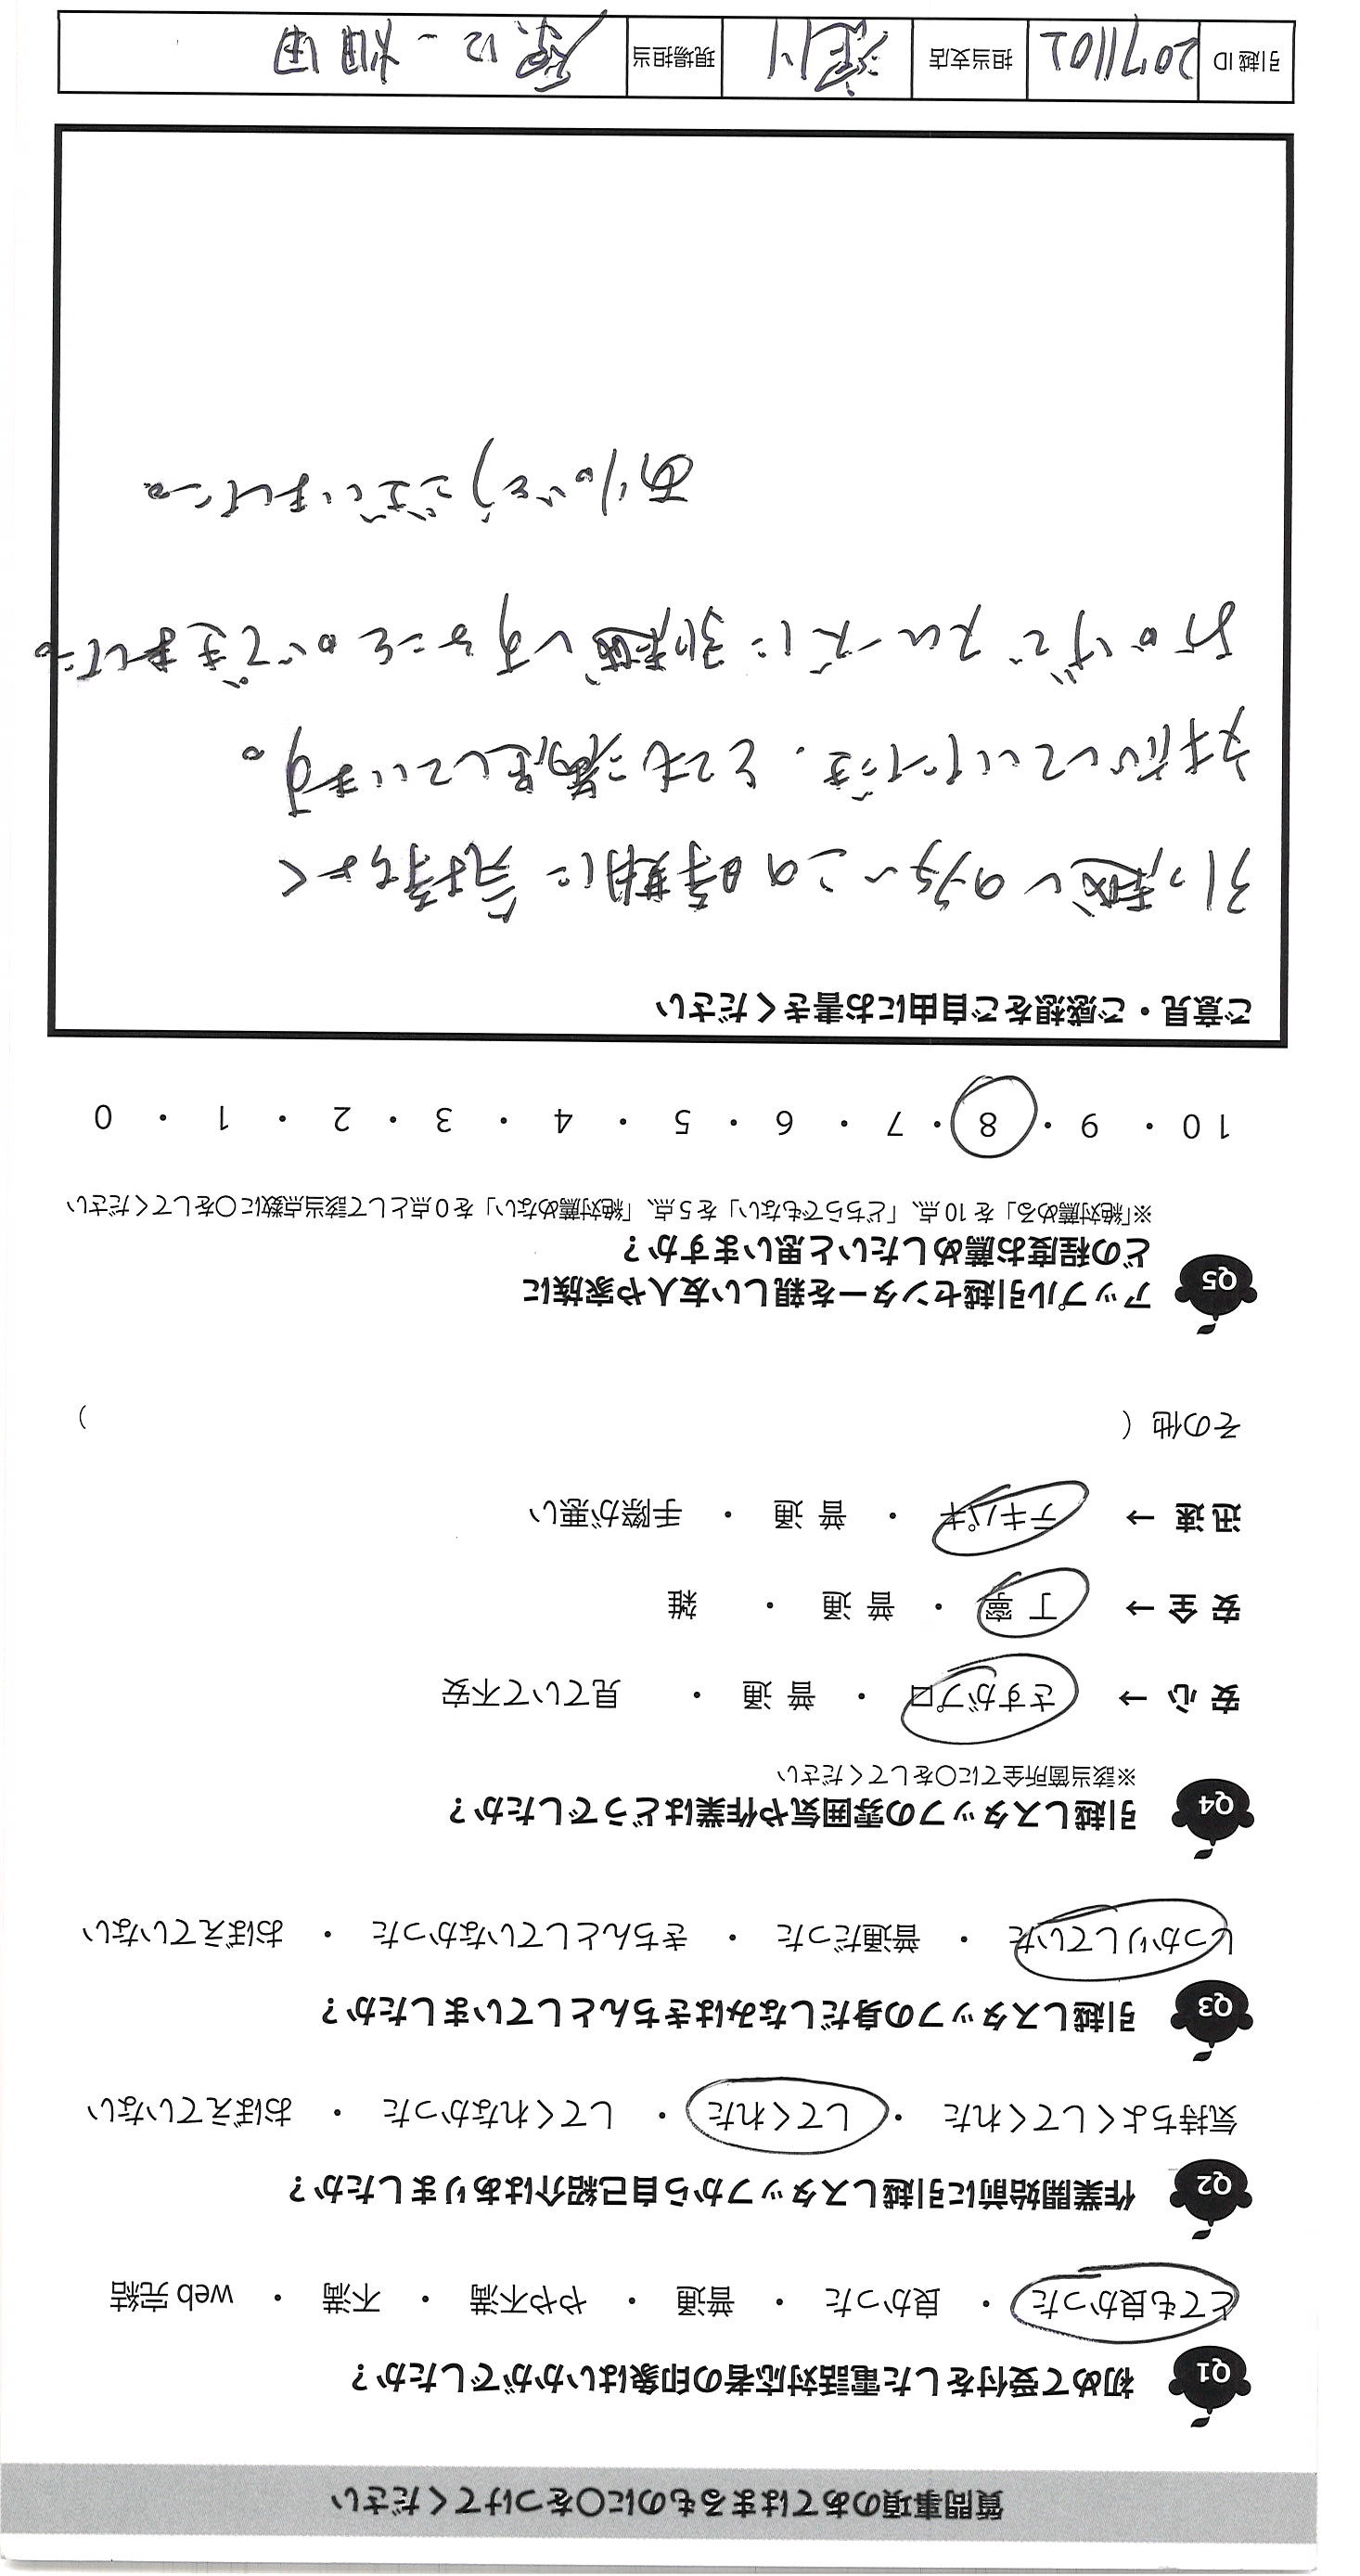 質問事項のあてはまるものに〇をつけてください
Q1 初めて受付をした電話対応者の印象はいかがでしたか？
とても良かった ・ 良かった ・ 普通 ・ やや不満 ・ 不満 ・ web 完結
Q2 作業開始前に引越しスタッフから自己紹介はありましたか？
気持ちよくしてくれた ・ してくれた ・ してくれなかった ・ おぼえていない
Q3 引越しスタッフの身だしなみはきちんとしていましたか？
しっかりしていた ・ 普通だった ・ きちんとしていなかった ・ おぼえていない
Q4 引越しスタッフの雰囲気や作業はどうでしたか？
※該当箇所全てに〇をしてください
安心 → さすがプロ ・ 普通 ・ 見ていて不安
安全 → 丁寧 ・ 普通 ・ 雑
迅速 → テキパキ ・ 普通 ・ 手際が悪い
その他（ ）
Q5 アップル引越センターを親しい友人や家族に
どの程度お薦めしたいと思いますか？
※「絶対薦める」を 10 点、「どちらでもない」を 5 点、「絶対薦めない」を 0 点として該当点数に〇をしてください
10 ・ 9 ・ 8 ・ 7 ・ 6 ・ 5 ・ 4 ・ 3 ・ 2 ・ 1 ・ 0
ご意見・ご感想をご自由にお書きください
引っ越しの多いこの時期に気持ちよく
対応していただき、とても満足しています。
おかげでスムーズに引越しすることができました。
ありがとうございました。
引越 ID 2071102 担当支店 現場担当